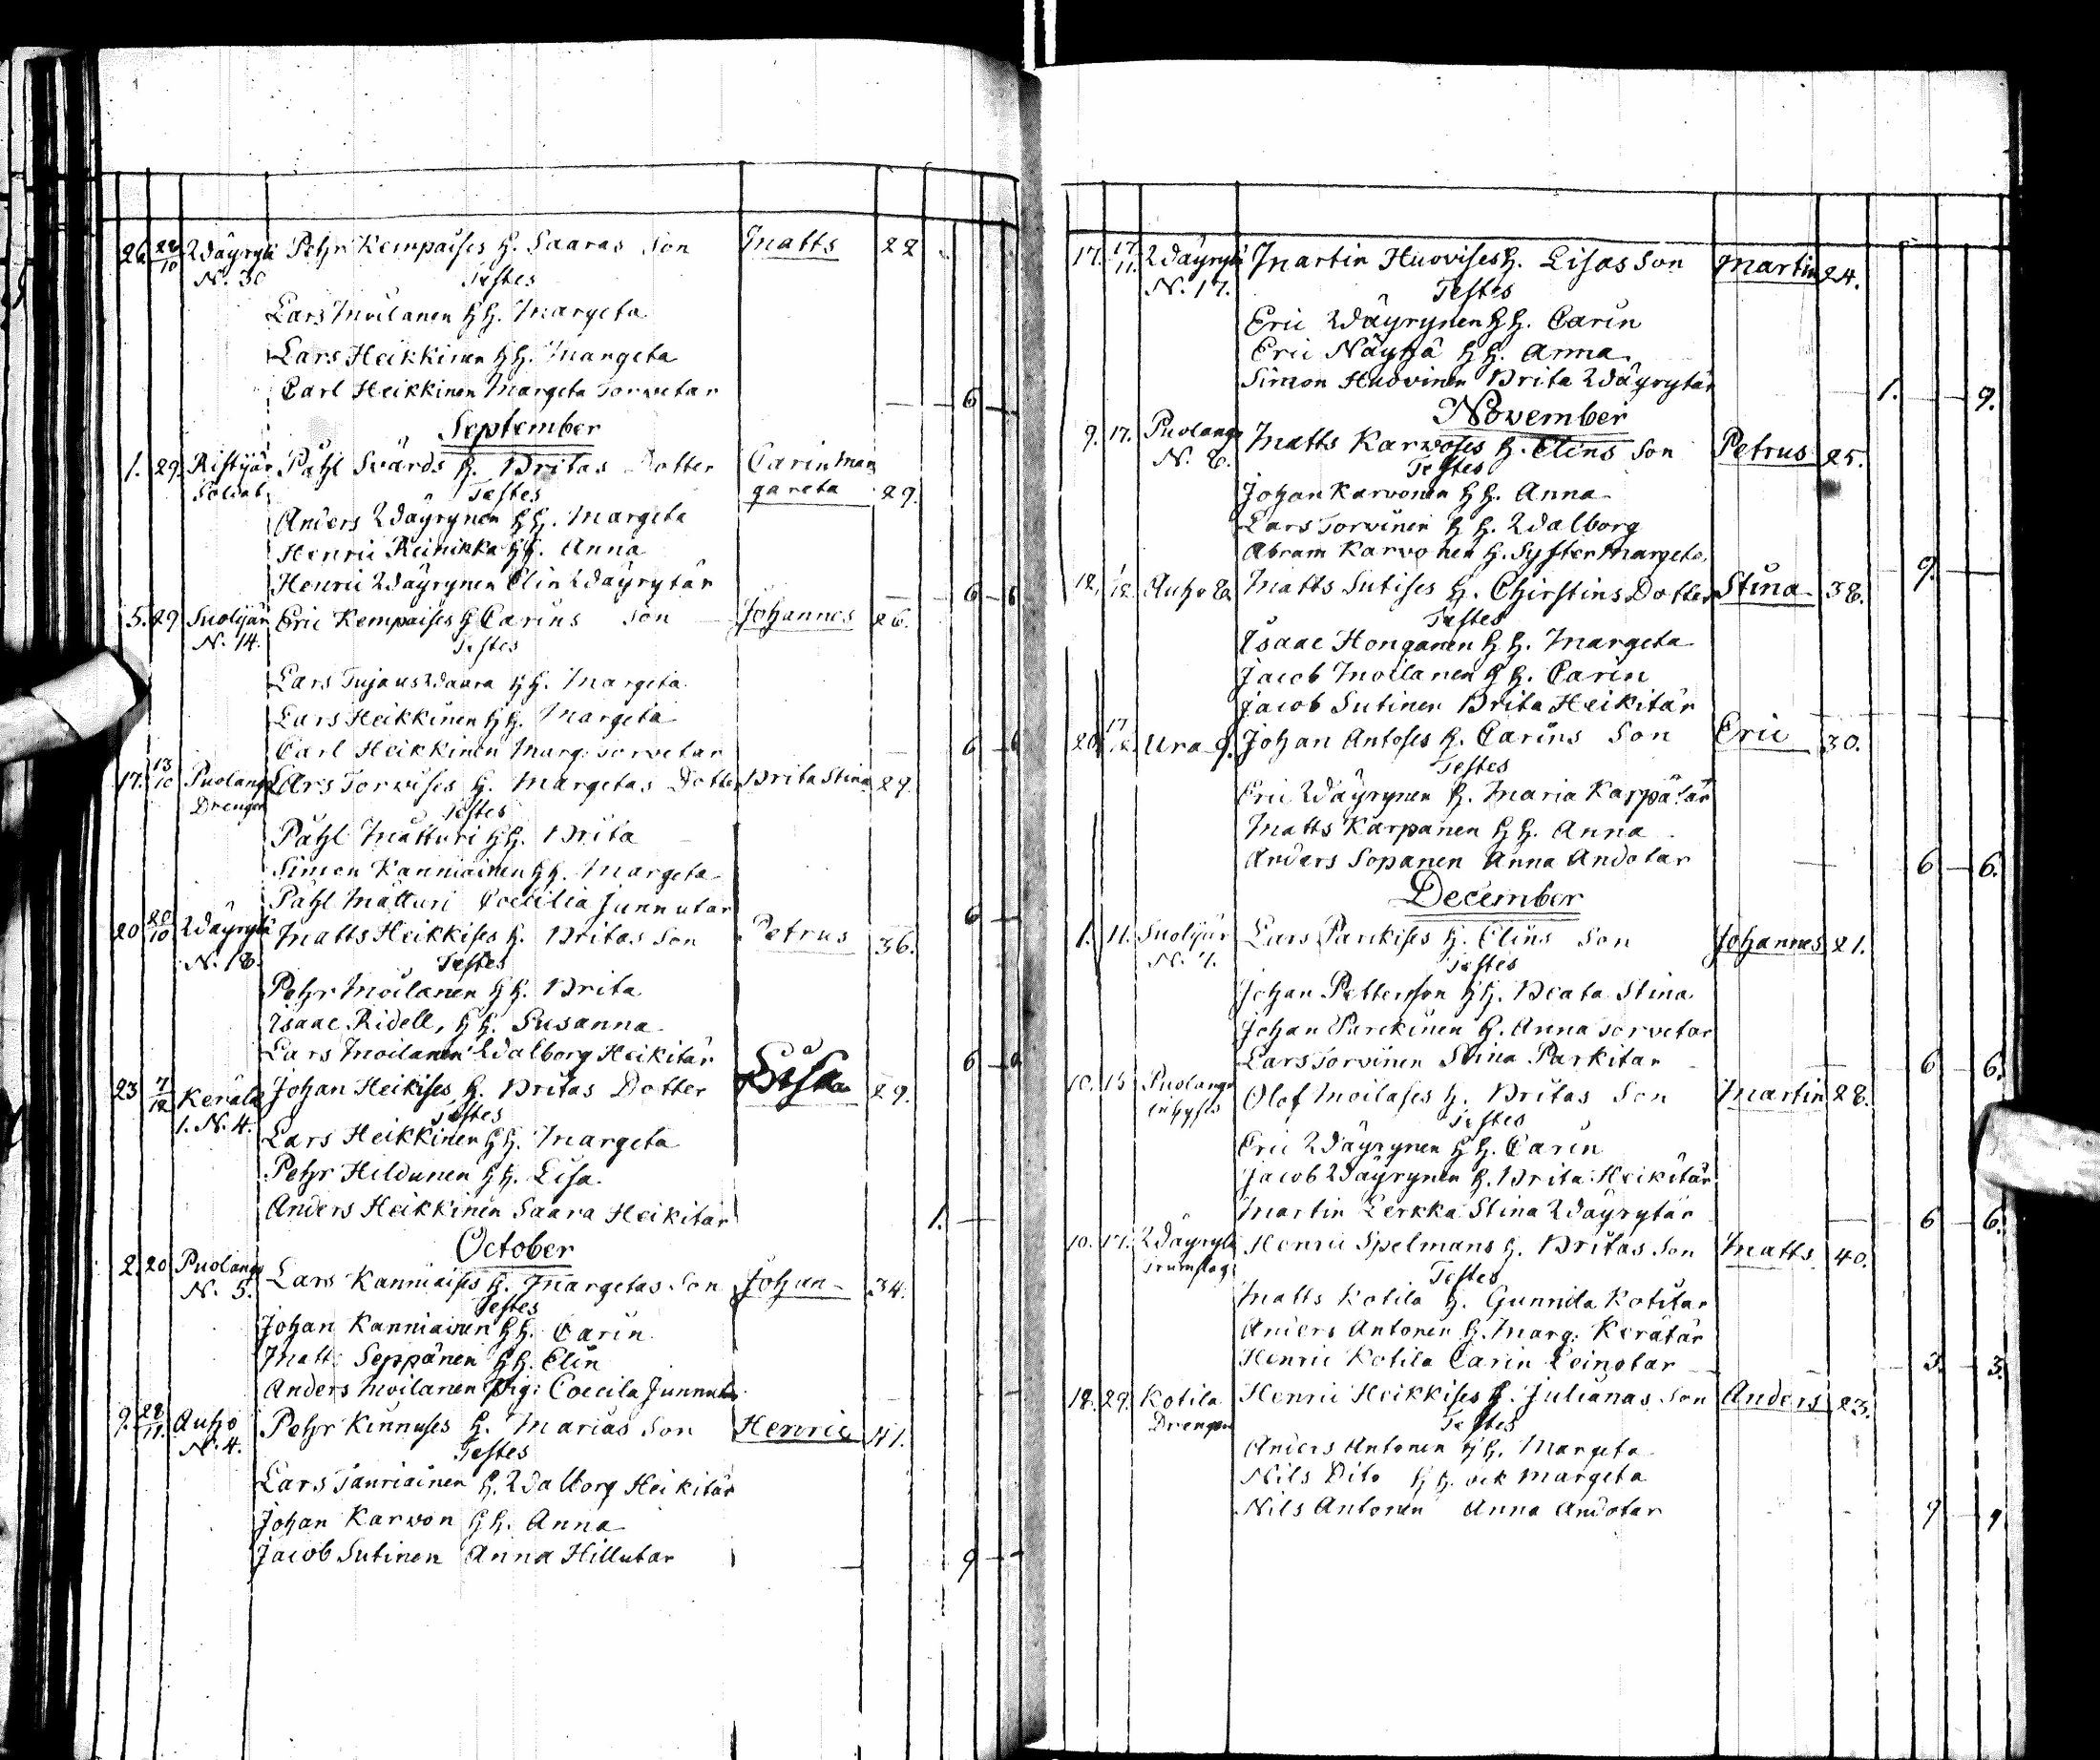 26. 28/10 Wäyryl: Pehr Kempaises H. Saaras Son Matts 22
N. 30 Testes
Lars Moilanen H H. Margeta
Lars Heikkinen H H. Margeta
Carl Heikkinen Margeta Torvetar
6
September
1. 29. Ristijär Påhl Svärds H. Britas Dotter Carin Mar
Soldat Testes gareta 29.
Anders Wäyrynen H H. Margeta
Henric Reinikka H H. Anna
Henric Wäyrynen Elin Wäyrytär
6 6
5. 29 Suolijär Eric Kempaises H Carins Son Johannes 26.
N. 14. Testes
Lars Tujauswaara H H. Margeta
Lars Heikkinen H H. Margeta
Carl Heikkinen Marg: Torvetar
6 6
17. 13/10 Puolang Lars Torvises H. Margetas Dotter Brita Stina 29.
Drengen Testes
Påhl Mätturi H H. Brita
Simon Kanniainen H H. Margeta
Påhl Mätturi Coecilia Junnutar
6
20 20/10 Wäyrylä Matts Heikkises H. Britas Son Petrus 36.
N. 18. Testes
Pehr Moilanen H H. Brita
Isaac Ridell, H H. Susanna
Lars Moilanen Walborg Heikitär
6 6
23 7/12 Kerälä Johan Heikises H. Britas Dotter Lisa 29.
1. N. 4. Testes
Lars Heikkinen H H. Margeta
Pehr Hildunen H H. Lisa
Anders Heikkinen Saara Heikitär
1.
October
2. 20 Puolang Lars Kanniaises H. Margetas Son Johan 34.
N. 5. Testes
Johan Kanniainen H H. Carin
Matts Seppänen H H. Elin
Anders Moilanen Pig: Coecila Junnutar
9. 28/11. Auho Pehr Kinnuses H. Marias Son Henric 41.
N. 4. Testes
Lars Tauriainen H. Walborg Heikitär
Johan Karvon H H. Anna
Jacob Sutinen Anna Hillutar
9
17. 17/11. Wäyrylä Martin Huovises H. Lisas Son Martin 24.
N. 17. Testes
Eric Wäyrynen H H. Carin
Eric Näyhä H H. Anna
Simon Huovinen Brita Wäyrytär
1. 9.
November
9. 17. Puolang Matts Karvoses H. Elins Son Petrus 25.
N. 8. Testes
Johan Karvonen H H. Anna
Lars Torvinen H H. Walborg
Abram Karvonen H. Syster Margeta
9.
12. 1/12 Auho 8 Matts Sutises H. Chirstins Dotter Stina 38.
Testes
Isaac Honganen H H. Margeta
Jacob Moilanen H H. Carin
Jacob Sutinen Brita Heikitär
20. 17/12 Ura 9. Johan Antoses H. Carins Son Eric 30.
Testes
Eric Wäyrynen H. Maria Karppätär
Matts Karpanen H H. Anna
Anders Sopanen Anna Andotar
6 6.
December
1. 11. Suolijär Lars Parkises H. Elins Son Johannes 21.
N. 7. Testes
Johan Petterson H H. Beata Stina
Johan Parckinen H. Anna Torvetar
Lars Torvinen Stina Parkitar
6 6.
10. 15 Puolang Olof Moilases H. Britas Son Martin 28.
inhyses Testes
Eric Wäyrynen H H. Carin
Jacob Wäyrynen H. Brita Heikitär
Martin Lerkka Stina Wäyrytär
6 6.
10. 17. Wäyrylä Henric Spelmans H. Britas Son Matts 40.
Trumslag: Testes
Matts Kotila H. Gunnila Kotitar
Anders Antonen H. Marg: Kerätär
Henric Kotila Carin Leinotar
3. 3.
18. 29. Kotila Henric Heikkises H. Julianas Son Anders 23.
Drengen Testes
Anders Antonen H H. Margeta
Nils Dito H H. ock Margeta
Nils Antonen Anna Andotar
9 9